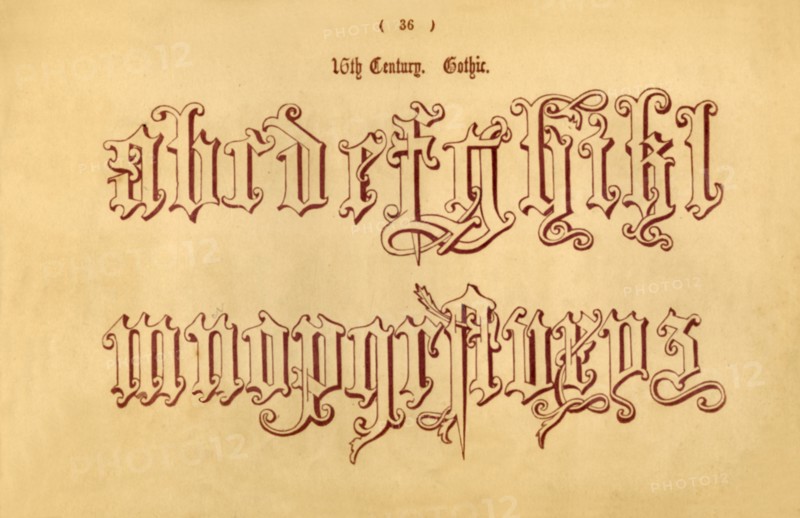 ( 36 )
16th Century. Gothic.
abcdefghikl
mnopqrſtvxyz
PHOTO12